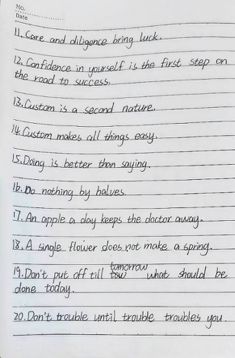 No.
Date
11. Care and diligence bring luck.
12. Confidence in yourself is the first step on
the road to success.
13. Custom is a second nature.
14. Custom makes all things easy.
15. Doing is better than saying.
16. Do nothing by halves.
17. An apple a day keeps the doctor away.
18. A single flower does not make a spring.
19. Don't put off till tomorrow what should be
done today.
20. Don't trouble until trouble troubles you.